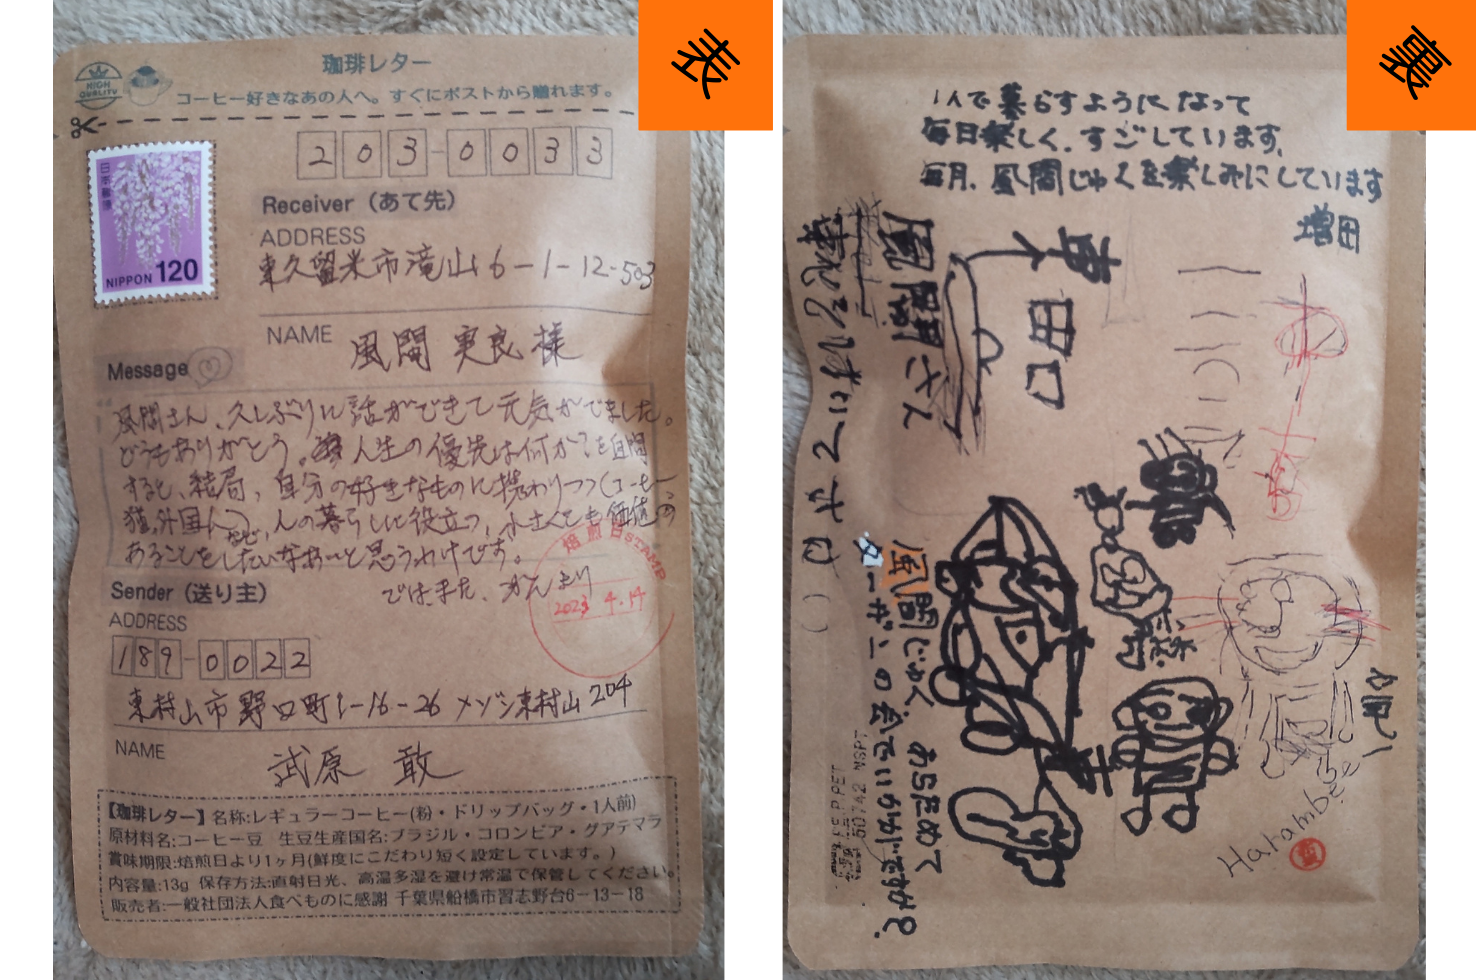 表
珈琲レター
HIGH QUALITY
コーヒー好きなあの人へ。すぐにポストから贈れます。
日本郵便
NIPPON 120
203-0033
Receiver（あて先）
ADDRESS
東久留米市滝山6-1-12-503
NAME
風間 実良 様
Message
風間さん、久しぶりに話ができて元気がでました。
どうもありがとう。人生の優先は何か?を自問
すると、結局、自分の好きなものに携わりつつ(コーヒー、
猫、外国人)など、人の暮らしに役立つ、小さくても価値の
あることをしたいなあ〜と思うわけです。
ではまた、
焙煎日STAMP
2023 4.14
Sender（送り主）
ADDRESS
189-0022
東村山市野口町1-16-26 メゾン東村山204
NAME
武原 敢
【珈琲レター】名称:レギュラーコーヒー(粉・ドリップバッグ・1人前)
原材料名:コーヒー豆　生豆生産国名:ブラジル・コロンビア・グアテマラ
賞味期限:焙煎日より1ヶ月(鮮度にこだわり短く設定しています。)
内容量:13g 保存方法:直射日光、高温多湿を避け常温で保管してください。
販売者:一般社団法人食べものに感謝 千葉県船橋市習志野台6-13-18
裏
1人で暮らすようになって
毎日楽しく、すごしています。
毎月、風間じゅくを楽しみにしています
増田
東
田口
風間さん
風間じゅく、あらためて
ターザニの会でいかがですか?
50742 NSPT